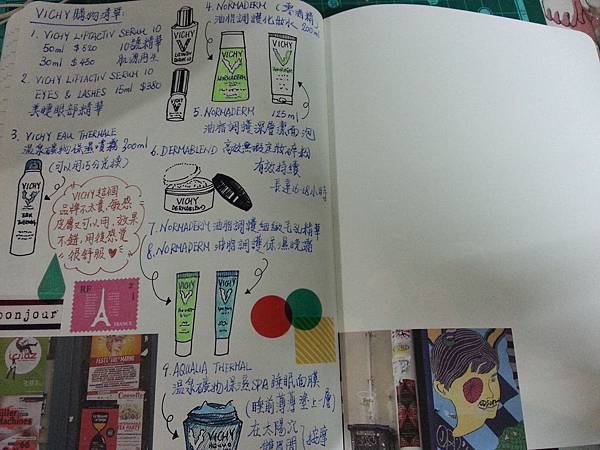 VICHY 購物清單:
1. VICHY LIFTACTIV SERUM 10
50ml $620 10號精華
30ml $450 肌源再生
2. VICHY LIFTACTIV SERUM 10
EYES & LASHES 15ml $380
美睫眼部精華
3. VICHY EAU THERMALE
溫泉礦物保濕噴霧 300ml
(可以用15分兌換)
VICHY
VICHY這個
品牌不太貴,敏感
皮膚又可以用,效果
不錯,用後感覺
很舒服
4. NORMADERM (無酒精)
油脂調護化妝水 200ml
VICHY
NORMADERM
VICHY
5. NORMADERM 125ml
油脂調護深層潔面泡
6. DERMABLEND 高效無瑕定妝碎粉
有效持續
長達16小時
VICHY
DERMABLEND
7. NORMADERM 油脂調護細緻毛孔精華
8. NORMADERM 油脂調護保濕晚霜
VICHY
VICHY
9. AQUALIA THERMAL
溫泉礦物保濕SPA睡眠面膜
(睡前薄薄塗上一層)
在太陽穴
雙眉間
按摩
VICHY
RF
FRANCE
bonjour